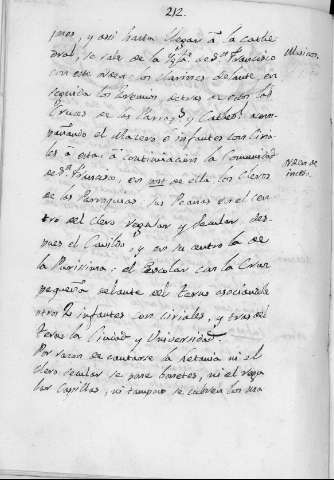 212.
pnos, y asi hasta llegar â la cathe
dral, se sale de la Ygla. de Sn. Francisco
con este orden: los clarines delante, en
seguida los Gremios, detras de estos las
Cruces de las Parroqs. y Cathedl. acom-
pañando el Macero e infantes con ciria-
les â esta: â continuacion la Comunidad
de Sn. Francisco, en pos de ella los Cleros
de las Parroquias, las Peanas en el cen-
tro del clero regular y secular, des-
pues el Cavildo, y en su centro la de
la Purisima: el Escolar con la Cruz
pequeña delante del Terns asociando
otros 2 infantes con ciriales, y tras del
Terns la Ciudad y Universidad.
Por razon de cantarse la Letania ni el
clero secular se pone bonetes, ni el regu
lar Capillas, ni tampoco se cubren los
Musicos.
Orden de